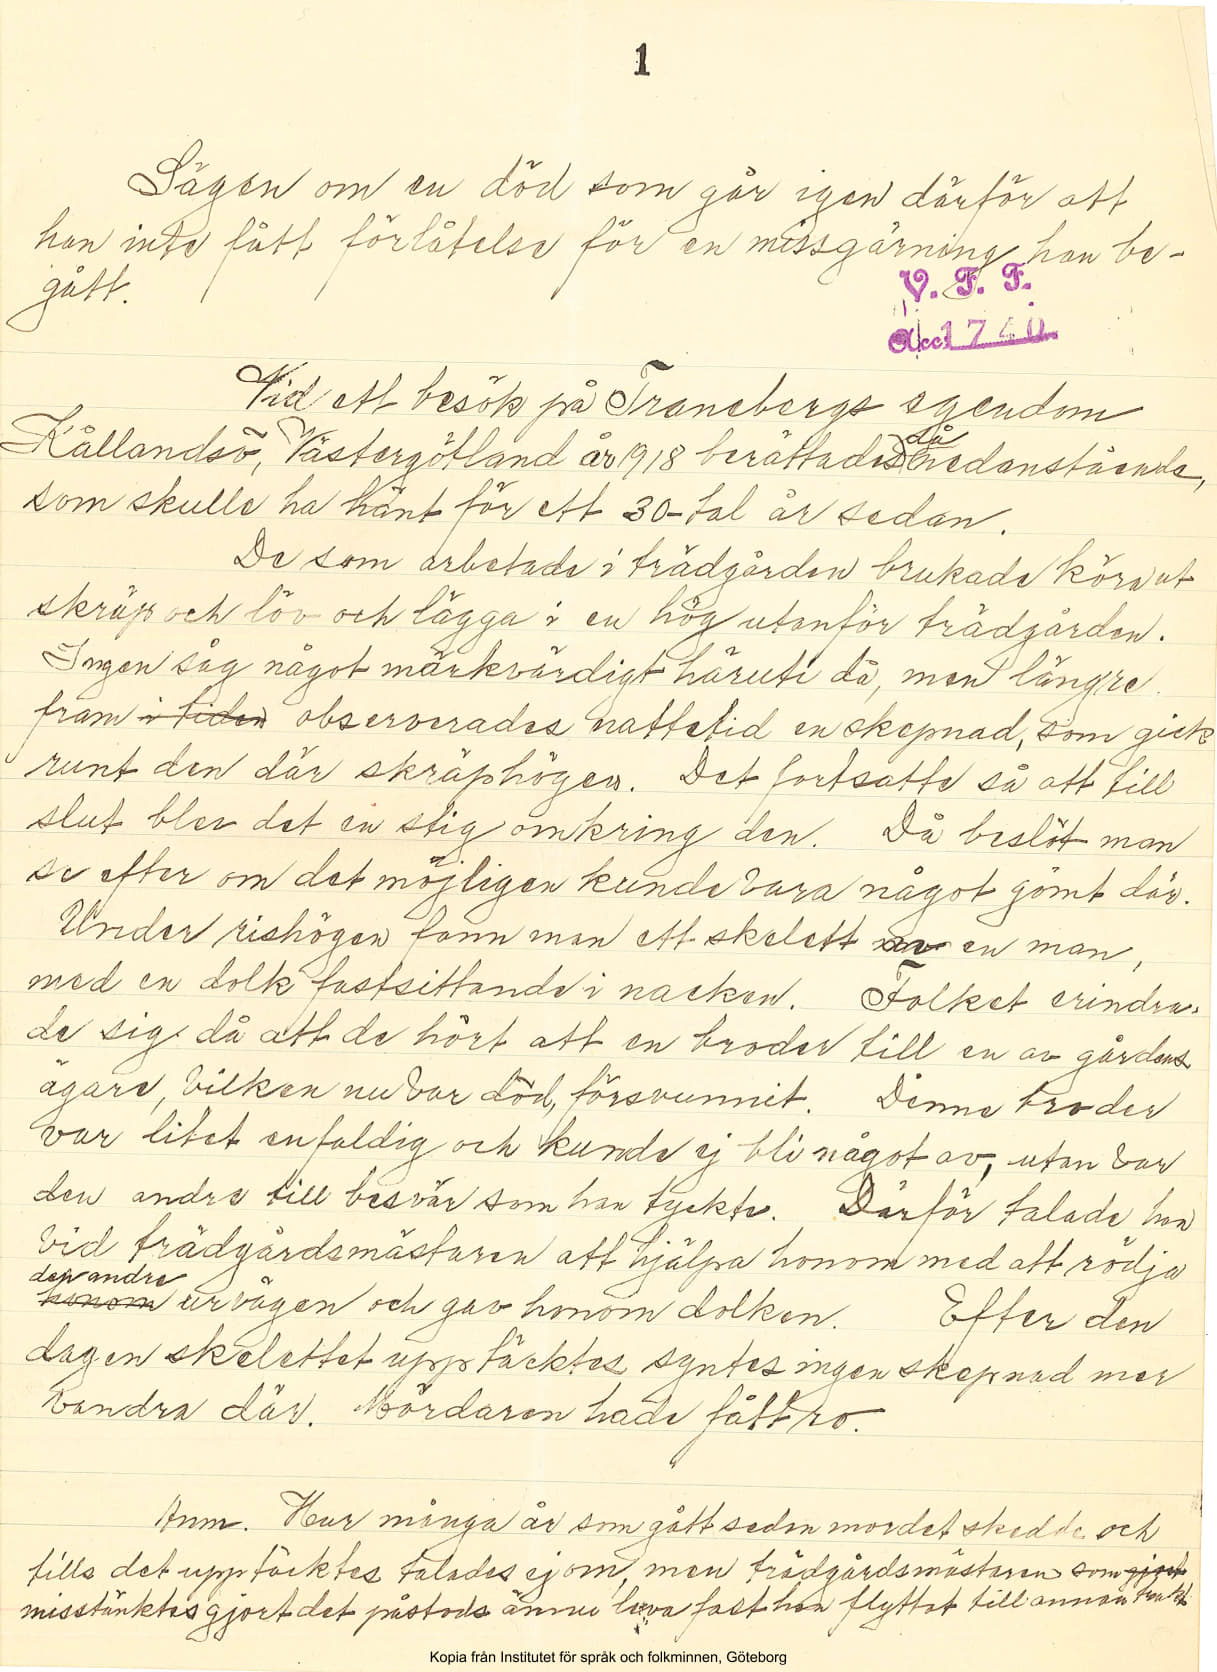 1
Sägen om en död som går igen därför att
han inte fått förlåtelse för en missgärning han be-
gått.
V. F. F.
Acc. 1740
Vid ett besök på Tranebergs egendom
Kållandsö, Västergötland år 1918 berättades då nedanstående,
som skulle ha hänt för ett 30-tal år sedan.
De som arbetade i trädgården brukade köra ut
skräp och löv och lägga i en hög utanför trädgården.
Ingen såg något märkvärdigt häruti då, men längre
fram i tiden observerades nattetid en skepnad, som gick
runt den där skräphögen. Det fortsatte så att till
slut blev det en stig omkring den. Då beslöt man
se efter om det möjligen kunde vara något gömt där.
Under rishögen fann man ett skelett av en man,
med en dolk fastsittande i nacken. Folket erindra-
de sig då att de hört att en broder till en av gårdens
ägare, vilken nu var död, försvunnit. Denne broder
var litet enfaldig och kunde ej bli något av, utan var
den andre till besvär som han tyckte. Därför talade han
vid trädgårdsmästaren att hjälpa honom med att rödja
den andre
honom ur vägen och gav honom dolken. Efter den
dagen skelettet upptäcktes syntes ingen skepnad mer
vandra där. Mördaren hade fått ro.
Anm. Hur många år som gått sedan mordet skedde och
tills det upptäcktes talades ej om, men trädgårdsmästaren som gjort
misstänktes gjort det påstods ännu leva fast han flyttat till annan trakt
Kopia från Institutet för språk och folkminnen, Göteborg